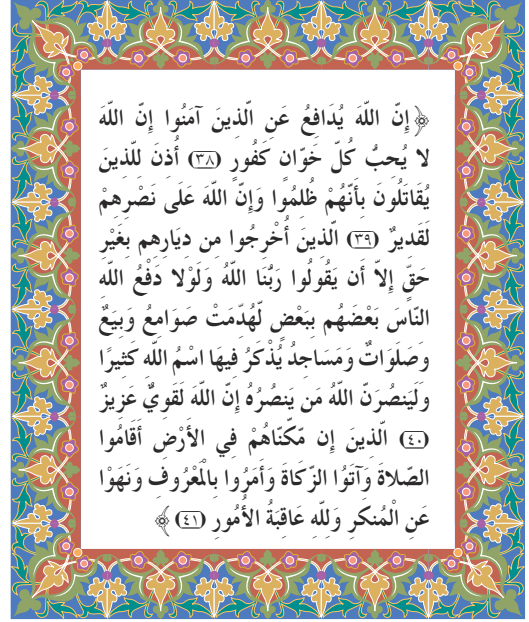 ﴿ إِنَّ اللَّهَ يُدَافِعُ عَنِ الَّذِينَ آمَنُوا إِنَّ اللَّهَ
لا يُحِبُّ كُلَّ خَوَّانٍ كَفُورٍ (٣٨) أُذِنَ لِلَّذِينَ
يُقَاتَلُونَ بِأَنَّهُمْ ظُلِمُوا وَإِنَّ اللَّهَ عَلَى نَصْرِهِمْ
لَقَدِيرٌ (٣٩) الَّذِينَ أُخْرِجُوا مِن دِيَارِهِم بِغَيْرِ
حَقٍّ إِلاَّ أَن يَقُولُوا رَبُّنَا اللَّهُ وَلَوْلا دَفْعُ اللَّهِ
النَّاسَ بَعْضَهُم بِبَعْضٍ لَّهُدِّمَتْ صَوَامِعُ وَبِيَعٌ
وَصَلَوَاتٌ وَمَسَاجِدُ يُذْكَرُ فِيهَا اسْمُ اللَّهِ كَثِيرًا
وَلَيَنصُرَنَّ اللَّهُ مَن يَنصُرُهُ إِنَّ اللَّهَ لَقَوِيٌّ عَزِيزٌ
(٤٠) الَّذِينَ إِن مَّكَّنَّاهُمْ فِي الأَرْضِ أَقَامُوا
الصَّلاةَ وَآتَوُا الزَّكَاةَ وَأَمَرُوا بِالْمَعْرُوفِ وَنَهَوْا
عَنِ الْمُنكَرِ وَلِلَّهِ عَاقِبَةُ الأُمُورِ (٤١) ﴾